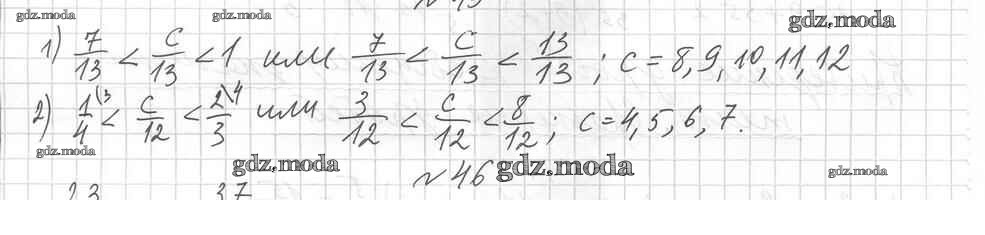 gdz.moda gdz.moda gdz.moda
1) 7/13 < c/13 < 1 или 7/13 < c/13 < 13/13 ; c = 8, 9, 10, 11, 12
2) 1/4 (3 < c/12 < 2/3 \4 или 3/12 < c/12 < 8/12 ; c = 4, 5, 6, 7.
gdz.moda gdz.moda gdz.moda gdz.moda
№ 46